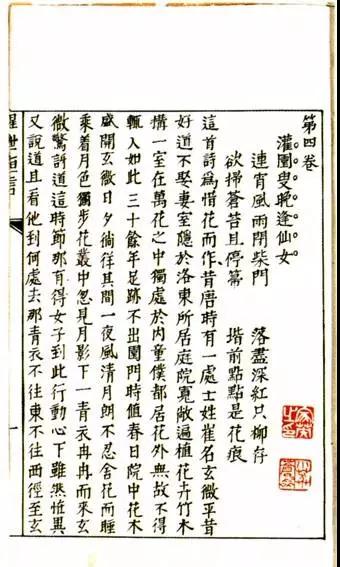 第四卷
灌園叟晚逢仙女
連宵風雨閉柴門　落盡深紅只柳存
欲掃蒼苔且停帚　堦前點點是花痕
這首詩爲惜花而作昔唐時有一處士姓崔名玄微平昔
好道不娶妻室隱於洛東所居庭院寬敞遍植花卉竹木
搆一室在萬花之中獨處於內童僕都居花外無故不得
輒入如此三十餘年足跡不出園門時值春日院中花木
盛開玄微日夕徜徉其間一夜風清月朗不忍舍花而睡
乘着月色獨步花叢中忽見月影下一青衣冉冉而來玄
微驚訝道這時節那有得女子到此行動心下雖然怪異
又說道且看他到何處去那青衣不往東不往西徑至玄
醒世恒言
一